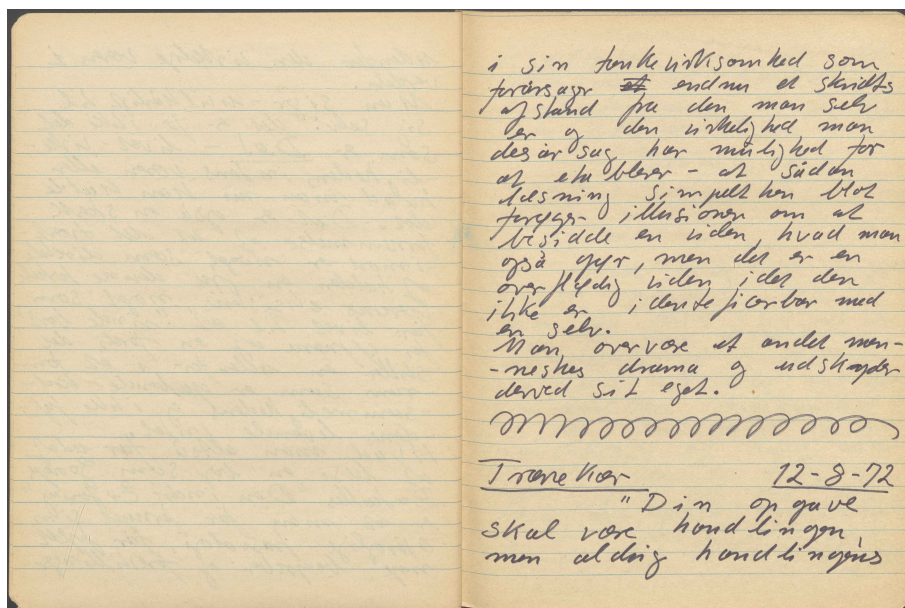 i sin tankevirksomhed som
forårsager endnu et skridts
afstand fra den man selv
er og den virkelighed man
desårsag har mulighed for
at etablere – at sådan
læsning simpelthen blot
forøger illusionen om at
besidde en viden, hvad man
også gør, men det er en
overflødig viden idet den
ikke er identificerbar med
en selv.
Man overvære et andet men-
-neskes drama og udskyder
derved sit eget.
Tranekær 12-8-72
"Din opgave
skal være handlingen,
men aldrig handlingens